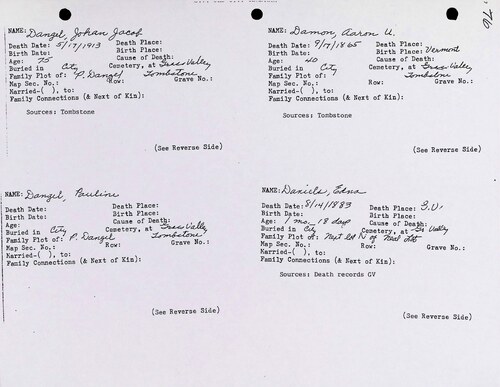 76
NAME: Dangel, Johan Jacob
Death Date: 5/17/1913 Death Place:
Birth Date: Birth Place:
Age: 75 Cause of Death:
Buried in City Cemetery, at Grass Valley
Family Plot of: P. Dangel Tombstone
Map Sec. No.: Row: Grave No.:
Married-( ), to:
Family Connections (& Next of Kin):
Sources: Tombstone
(See Reverse Side)
NAME: Damon, Aaron U.
Death Date: 9/17/1865 Death Place:
Birth Date: Birth Place: Vermont
Age: 40 Cause of Death:
Buried in City Cemetery, at Grass Valley
Family Plot of: Tombstone
Map Sec. No.: Row: Grave No.:
Married-( ), to:
Family Connections (& Next of Kin):
Sources: Tombstone
(See Reverse Side)
NAME: Dangel, Pauline
Death Date: Death Place:
Birth Date: Birth Place:
Age: Cause of Death:
Buried in City Cemetery, at Grass Valley
Family Plot of: P. Dangel Tombstone
Map Sec. No.: Row: Grave No.:
Married-( ), to:
Family Connections (& Next of Kin):
(See Reverse Side)
NAME: Daniels, Edna
Death Date: 8/14/1883 Death Place:
Birth Date: Birth Place:
Age: 1 mo - 18 days Cause of Death:
Buried in City Cemetery, at Gr Valley
Family Plot of: Next lot N of
Map Sec. No.: Row: Grave No.:
Married-( ), to:
Family Connections (& Next of Kin):
Sources: Death records GV
(See Reverse Side)